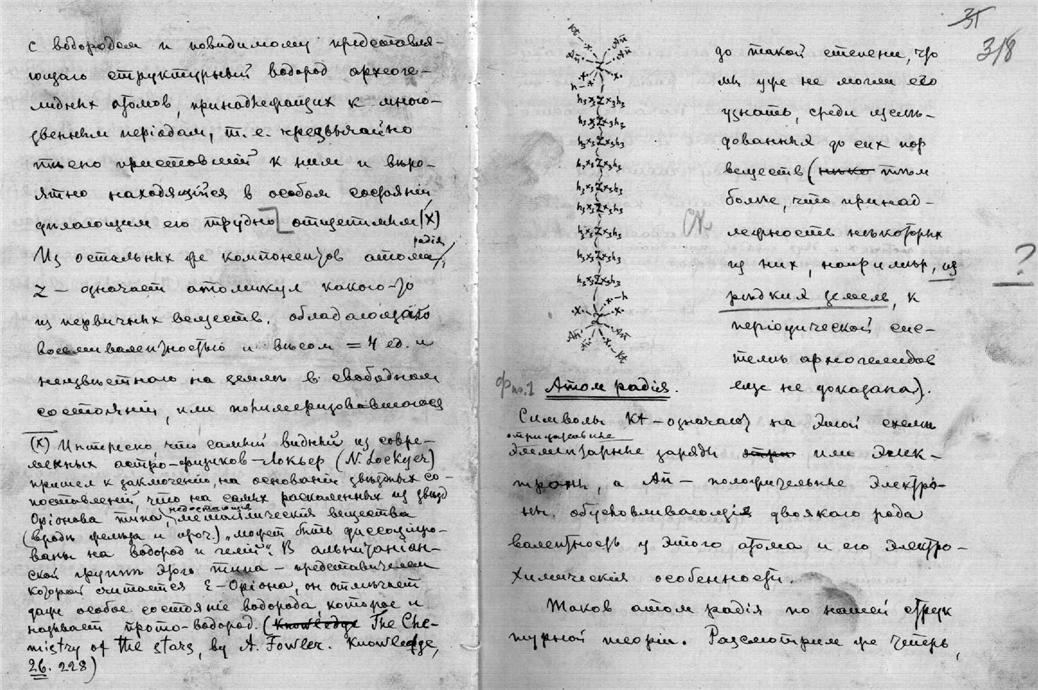 с водородом и повидимому представля-
ющаго структурный водород археоге-
лидных атомов, принадлежащих к много-
звенным періодам, т. е. чрезвычайно
тѣсно приставшій к ним и вѣро-
ятно находящійся в особом состояніи
дѣлающим его трудно отщепимым (х)
Из остальных же компонентов атома радія,
Z — означает атомикул какого-то
из первичных веществ, обладающаго
восьмивалентностью и вѣсом = 4 ед. и
неизвѣстного на землѣ в свободном
состояніи, или полимеризовавшагося
(х) Интересно, что самый видный из совре-
менных астро-физиков — Локьер (N. Lockyer)
пришел к заключенію, на основаніи звѣздных со-
поставленій, что на самых раскаленных из звѣзд
Оріонова типа, недостающія металлическія вещества
(вроде желѣза и проч.) „может быть диссоцииро-
ваны на водород и гелій“. В альнитаніан-
ской группѣ этого типа — представителем
которой считается Ε-Оріона, он отмѣчает
даже особое состояніе водорода, которое и
называет прото-водород. (Knowledge The Che-
mistry of the stars, by A. Fowler. Knowledge,
26. 228)
31
318
до такой степени, что
мы уже не могли его
узнать, среди изслѣ-
дованных до сих пор
веществ (тѣм
болѣе, что принад-
лежность нѣкоторых
из них, напримѣр, из
рѣдких земель, к
періодической сис-
темѣ архогелидов
еще не доказана).
?
h₃x₃Zx₃h₃
h₃x₃Zx₃h₃
h₃x₃Zx₃h₃
h₃x₃Zx₃h₃
h₃x₃Zx₃h₃
h₃x₃Zx₃h₃
h₃x₃Zx₃h₃
h₃x₃Zx₃h₃
h₃x₃Zx₃h₃
Фиг. 1 Атом радія.
Символы Кt — означают на этой схемѣ
отрицательные
элементарные заряды или Элек-
троны, а Ап — положительные Электро-
ны, обусловливающія двоякаго рода
валентность у этого атома и его электро-
химическія особенности.
Таков атом радія по нашей струк
турной теоріи. Разсмотрим же теперь,